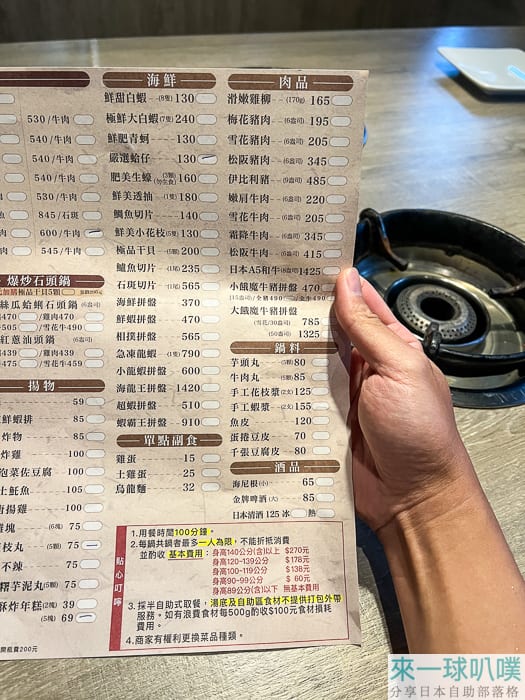 530/牛肉
540/牛肉
540/牛肉
540/牛肉
530/牛肉
845/石斑
600/牛肉
545/牛肉
爆炒石頭鍋
絲瓜蛤蜊石頭鍋 (6盎司)
470/雞肉470
505/雪花牛490
紅蔥油頭鍋 (6盎司)
439/雞肉439
470/雪花牛459
揚物
59
鮮蝦排 85
炸物 85
炸雞 100
泡菜佐豆腐 100
土魠魚 105
唐揚雞 100
雞塊 (6塊) 75
花枝丸 (5顆) 75
不辣 75
糬芋泥丸 (5顆) 75
酥炸年糕 (2塊) 39
(5塊) 69
開瓶費200元
海鮮
鮮甜白蝦 (8隻) 130
極鮮大白蝦 (7隻) 240
鮮肥青蚵 130
嚴選蛤仔 130
肥美生蠔 (3顆) (勿生食) 160
鮮美透抽 (1隻) 180
鯛魚切片 140
鮮美小花枝 (5隻) 130
極品干貝 (5顆) 200
鱸魚切片 (1尾) 235
石斑切片 (1尾) 565
海鮮拼盤 370
鮮蝦拼盤 470
相撲拼盤 565
急凍龍蝦 (1隻) 790
小龍蝦拼盤 600
海龍王拼盤 1420
超蝦拼盤 510
蝦霸王拼盤 910
單點副食
雞蛋 15
土雞蛋 25
烏龍麵 32
肉品
滑嫩雞柳 (170g) 165
梅花豬肉 (6盎司) 195
雪花豬肉 (6盎司) 205
松阪豬肉 (6盎司) 345
伊比利豬 (9盎司) 485
嫩肩牛肉 (6盎司) 220
雪花牛肉 (6盎司) 205
霜降牛肉 (6盎司) 345
松阪牛肉 (6盎司) 415
日本A5和牛 (6盎司) 1425
小餓魔牛豬拼盤 470
(15盎司)/全豬490 /全牛490
大餓魔牛豬拼盤
(雪花/30盎司) 785
(50盎司) 1325
鍋料
芋頭丸 (5顆) 80
牛肉丸 (5顆) 85
手工花枝漿 (2支) 125
手工蝦漿 (2支) 155
魚皮 120
蛋捲豆皮 70
千張豆腐皮 80
酒品
海尼根 (小) 65
金牌啤酒 (大) 85
日本清酒 125 冰 熱
貼心叮嚀
1.用餐時間100分鐘。
2.每鍋共鍋者最多一人為限,不能折抵消費
並酌收 基本費用:
身高140公分(含)以上 $270元
身高120-139公分 $178元
身高100-119公分 $138元
身高90-99公分 $ 60元
身高89公分(含)以下 無基本費用
3.採半自助式取餐,湯底及自助區食材不提供打包外帶
服務。如有浪費食材每500g酌收$100元食材損耗
費用。
4.商家有權利更換菜品種類。
來一球叭噗
分享日本自助部落格